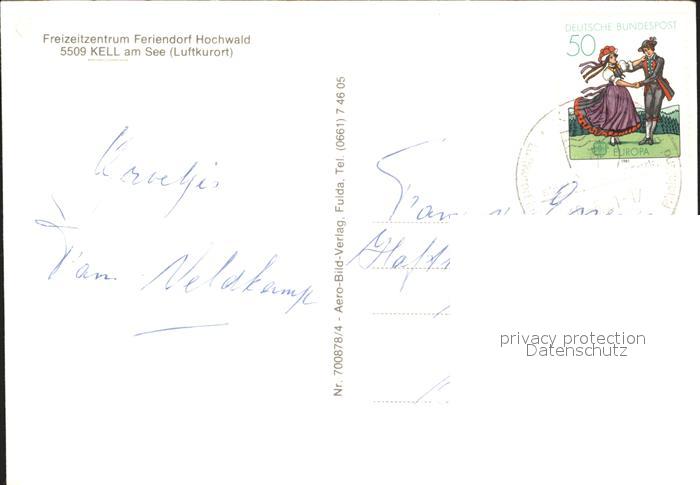 Freizeitzentrum Feriendorf Hochwald
5509 KELL am See (Luftkurort)
Groetjes
Fam Veldkamp
Nr. 700878/4 - Aero-Bild-Verlag, Fulda, Tel. (0661) 7 46 05
DEUTSCHE BUNDESPOST
50
EUROPA
1981
Fam
privacy protection
Datenschutz